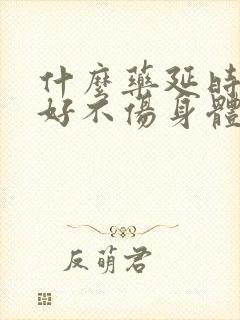 什麼藥延時
好不傷身體
反萌君